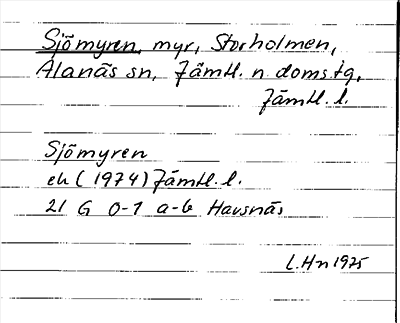 Sjömyren, myr, Storholmen,
Alanäs sn, Jämtl. n. doms. tg,
Jämtl. l.
Sjömyren
ek (1974) Jämtl. l.
21 G 0-1 a-b Havsnäs
L. Hn 1975